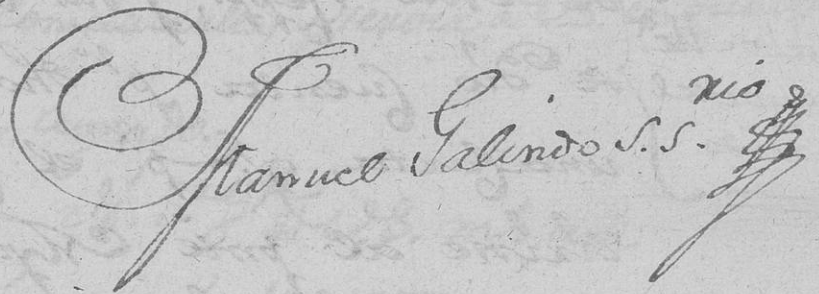 Manuel Galindo S. S.rio